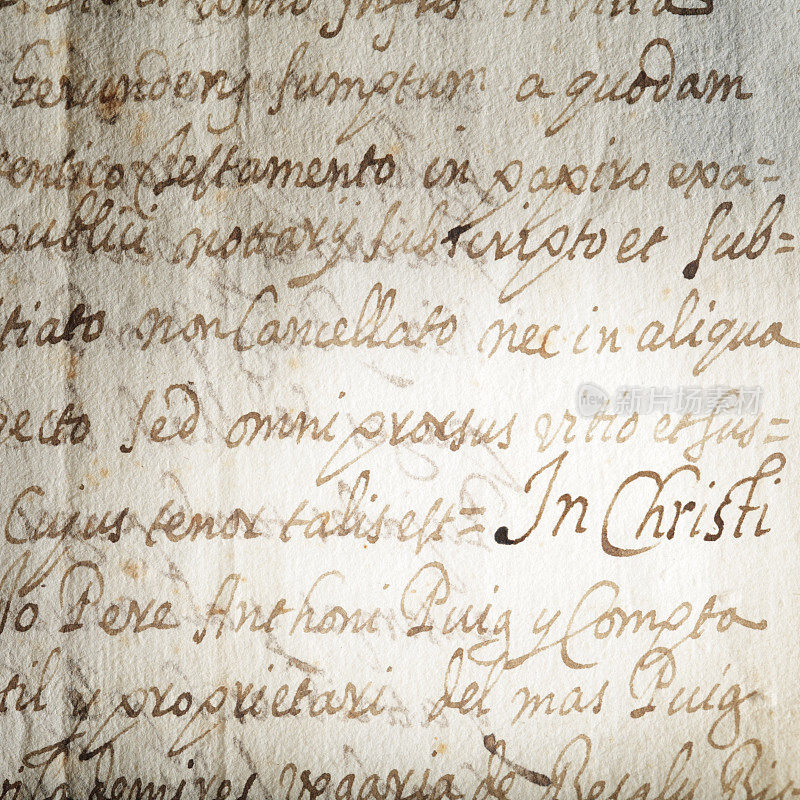 Gerundensj sumptum a quodam
entico Testamento in papiro exa=
publici nottarij subscripto et sub=
tiato non Cancellato nec in aliqua
pecto sed omni prorsus vitio et sus=
Cujus tenor talis est= In Christi
Jo Pere Anthoni Puig y Compta
til y proprietari del mas Puig
de Besalu
new 新视野图片素材